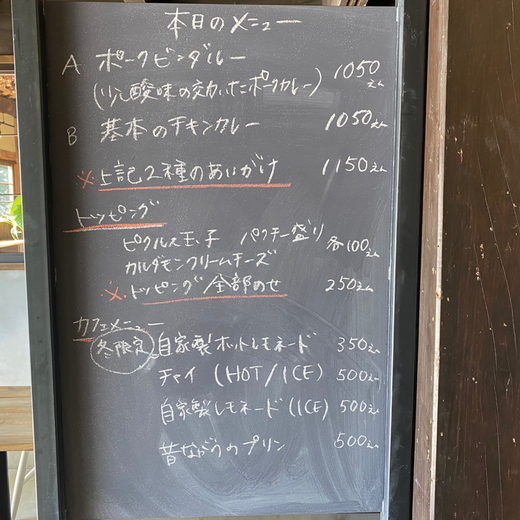 本日のメニュー
A ポークビンダルー 1050えん
(少し酸味の効いたポークカレー)
B 基本のチキンカレー 1050えん
※上記2種のあいがけ 1150えん
トッピング
ピクルス玉子 パクチー盛り 各100えん
カルダモンクリームチーズ
※トッピング全部のせ 250えん
カフェメニュー
冬限定 自家製ホットレモネード 350えん
チャイ (HOT/ICE) 500えん
自家製レモネード(ICE) 500えん
昔ながらのプリン 500えん